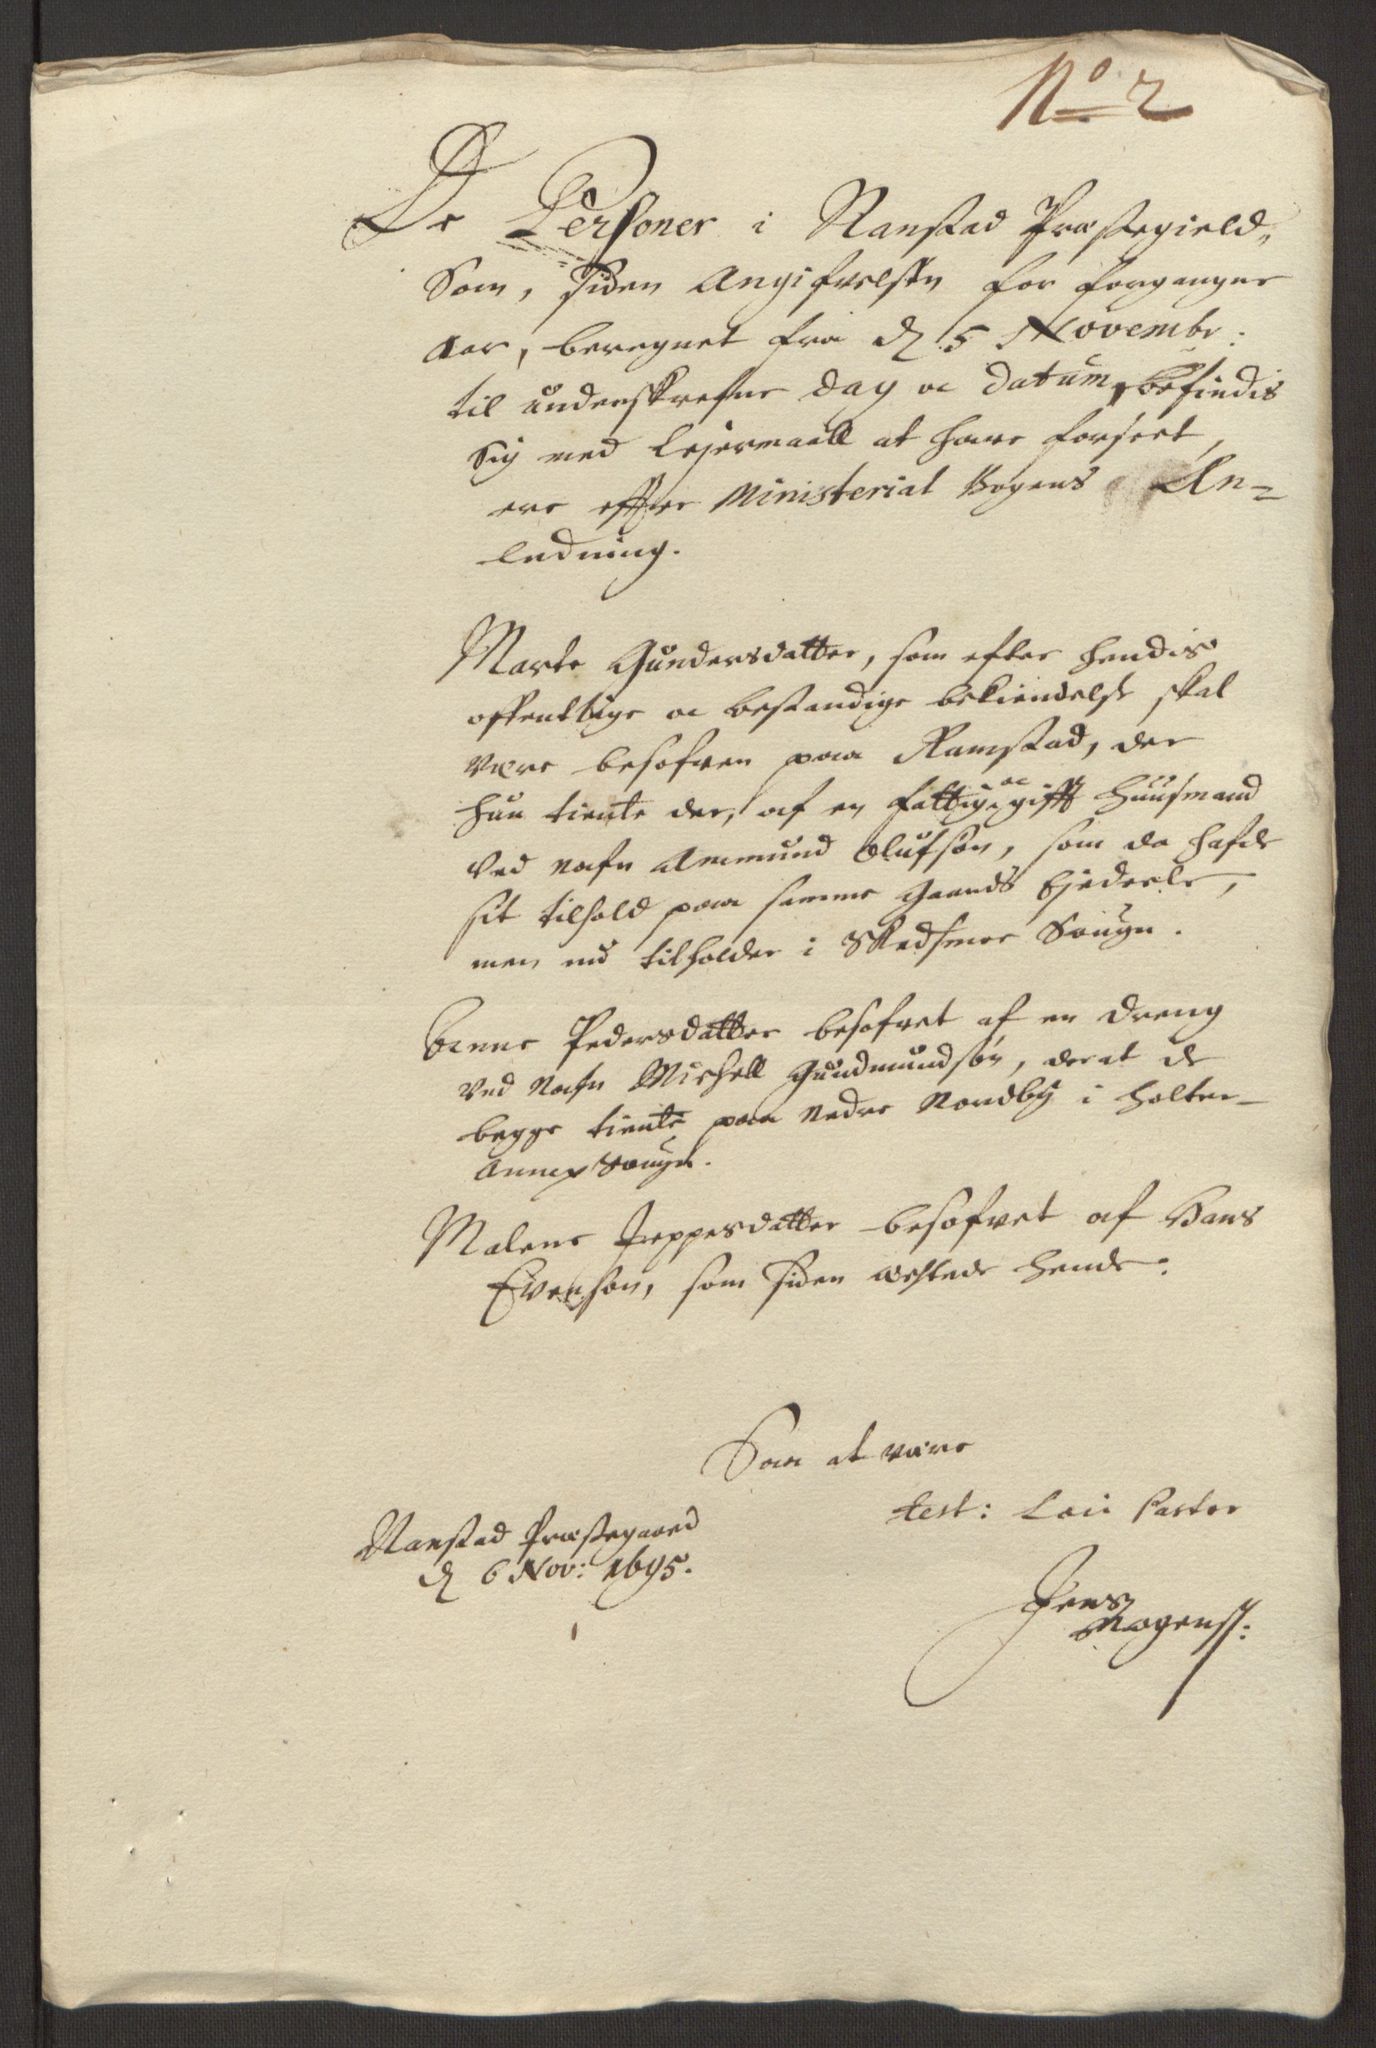 No 2
De Personer i Nanstad Præstegield,
Som, siden Angifvelsen for forgangne
Aar, beregnet fra d 5 Novembr:
til underskrefne Dag oc Datum, befindis
Sig med Lejermaall at have forseet,
ere effter Ministerial Bogens An=
ledning.
Marte Gundersdatter, som efter hendis
offentlige oc bestandige bekiendelse skal
være besofven paa Ramstad, der
hun tiente der, af en fattig oc gifft Huusmand
ved nafn Ammund Olufsøn, som da hafde
sit tilhold paa samme Gaards Ejedeele,
men nu tilholder i Skedsmoe Sougn.
Anne Pedersdatter besofvet af en Dreng
ved Nafn Michell Gudmundsøn, der at de
begge tiente paa Nedre Nordby i Holter-
Annex Sougn.
Malene Jeppesdatter besofvet af Hans
Evensøn, som siden ægtede hende.
Saa at være
test: Loci Pastor
Nanstad Præstegaard
d 6 Nov: 1695.
Jens
Mogenss: